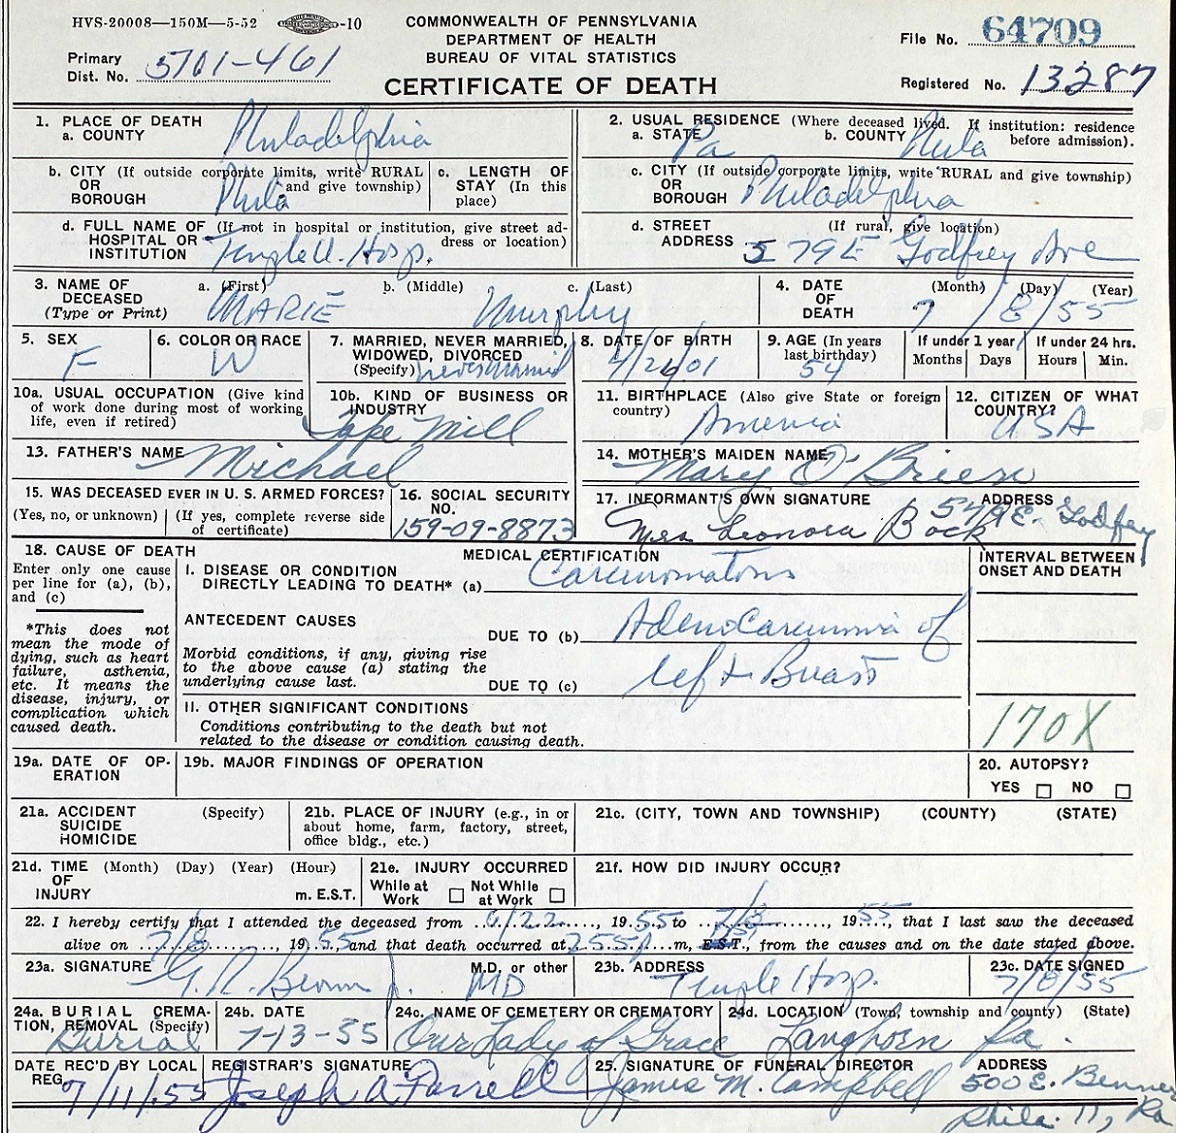 HVS-20008—150M—5-52 -10
COMMONWEALTH OF PENNSYLVANIA
DEPARTMENT OF HEALTH
BUREAU OF VITAL STATISTICS
CERTIFICATE OF DEATH
File No. 64709
Primary Dist. No. 5701-461
Registered No. 13287
1. PLACE OF DEATH
a. COUNTY Philadelphia
2. USUAL RESIDENCE (Where deceased lived. If institution: residence before admission).
a. STATE Pa b. COUNTY Phila
b. CITY (If outside corporate limits, write RURAL and give township) OR BOROUGH Phila
c. LENGTH OF STAY (In this place)
c. CITY (If outside corporate limits, write RURAL and give township) OR BOROUGH Philadelphia
d. FULL NAME OF (If not in hospital or institution, give street address or location) HOSPITAL OR INSTITUTION Temple U. Hosp.
d. STREET ADDRESS (If rural, give location) 579 E Godfrey Ave
3. NAME OF DECEASED (Type or Print) a. (First) b. (Middle) c. (Last)
MARIE Murphy
4. DATE OF DEATH (Month) (Day) (Year)
7/8/55
5. SEX F
6. COLOR OR RACE W
7. MARRIED, NEVER MARRIED, WIDOWED, DIVORCED (Specify) never married
8. DATE OF BIRTH 4/26/01
9. AGE (In years last birthday) 54
If under 1 year Months Days
If under 24 hrs. Hours Min.
10a. USUAL OCCUPATION (Give kind of work done during most of working life, even if retired)
10b. KIND OF BUSINESS OR INDUSTRY Tape Mill
11. BIRTHPLACE (Also give State or foreign country) America
12. CITIZEN OF WHAT COUNTRY? USA
13. FATHER'S NAME Michael
14. MOTHER'S MAIDEN NAME Mary O'Brien
15. WAS DECEASED EVER IN U. S. ARMED FORCES?
(Yes, no, or unknown) (If yes, complete reverse side of certificate)
16. SOCIAL SECURITY NO. 159-09-8873
17. INFORMANT'S OWN SIGNATURE ADDRESS
Mrs Leonora Bock 579 E. Godfrey
18. CAUSE OF DEATH
Enter only one cause per line for (a), (b), and (c)
*This does not mean the mode of dying, such as heart failure, asthenia, etc. It means the disease, injury, or complication which caused death.
MEDICAL CERTIFICATION
INTERVAL BETWEEN ONSET AND DEATH
I. DISEASE OR CONDITION DIRECTLY LEADING TO DEATH* (a) Carcinomatosis
ANTECEDENT CAUSES
DUE TO (b) Adenocarcinoma of
Morbid conditions, if any, giving rise to the above cause (a) stating the underlying cause last.
DUE TO (c) left Breast
II. OTHER SIGNIFICANT CONDITIONS
Conditions contributing to the death but not related to the disease or condition causing death.
170X
19a. DATE OF OPERATION
19b. MAJOR FINDINGS OF OPERATION
20. AUTOPSY?
YES NO
21a. ACCIDENT SUICIDE HOMICIDE (Specify)
21b. PLACE OF INJURY (e.g., in or about home, farm, factory, street, office bldg., etc.)
21c. (CITY, TOWN AND TOWNSHIP) (COUNTY) (STATE)
21d. TIME OF INJURY (Month) (Day) (Year) (Hour) m. E.S.T.
21e. INJURY OCCURRED
While at Work Not While at Work
21f. HOW DID INJURY OCCUR?
22. I hereby certify that I attended the deceased from 6/22, 1955 to 7/8, 1955, that I last saw the deceased
alive on 7/8, 1955 and that death occurred at 255 m, E.S.T., from the causes and on the date stated above.
23a. SIGNATURE M.D. or other
G. R. Brown Jr. MD
23b. ADDRESS Temple Hosp.
23c. DATE SIGNED 7/8/55
24a. BURIAL CREMATION, REMOVAL (Specify) Burial
24b. DATE 7-13-55
24c. NAME OF CEMETERY OR CREMATORY Our Lady of Grace
24d. LOCATION (Town, township and county) (State) Langhorn Pa.
DATE REC'D BY LOCAL REG. 7/11/55
REGISTRAR'S SIGNATURE Joseph A Farrell
25. SIGNATURE OF FUNERAL DIRECTOR ADDRESS
James M. Campbell 500 E. Benner
Phila. 11, Pa